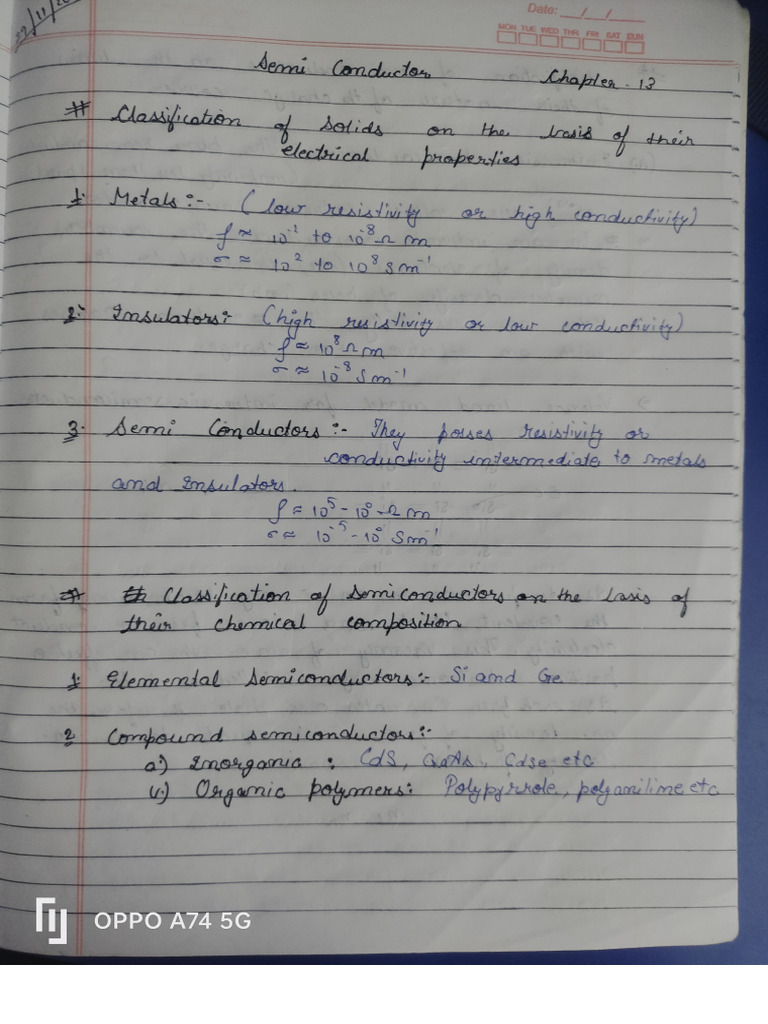 Date: __/__/__
MON TUE WED THR FRI SAT SUN
Semi Conductor Chapter - 13
# Classification of solids on the basis of their
electrical properties
1. Metals:- (low resistivity or high conductivity)
ρ ≈ 10⁻² to 10⁻⁸ Ω m
σ ≈ 10² to 10⁸ S m⁻¹
2. Insulators:- (high resistivity or low conductivity)
ρ ≈ 10⁸ Ω m
σ ≈ 10⁻⁸ S m⁻¹
3. Semi Conductors:- They posses resistivity or
conductivity intermediate to metals
and Insulators.
ρ ≈ 10⁵ - 10⁰ Ω m
σ ≈ 10⁻⁵ - 10⁰ S m⁻¹
# Classification of Semiconductors on the basis of
their chemical composition
1. Elemental Semiconductors:- Si and Ge
2 Compound semiconductors:-
a) Inorganic : CdS, GaAs, CdSe etc
Organic polymers: Polypyrrole, polyaniline etc
OPPO A74 5G